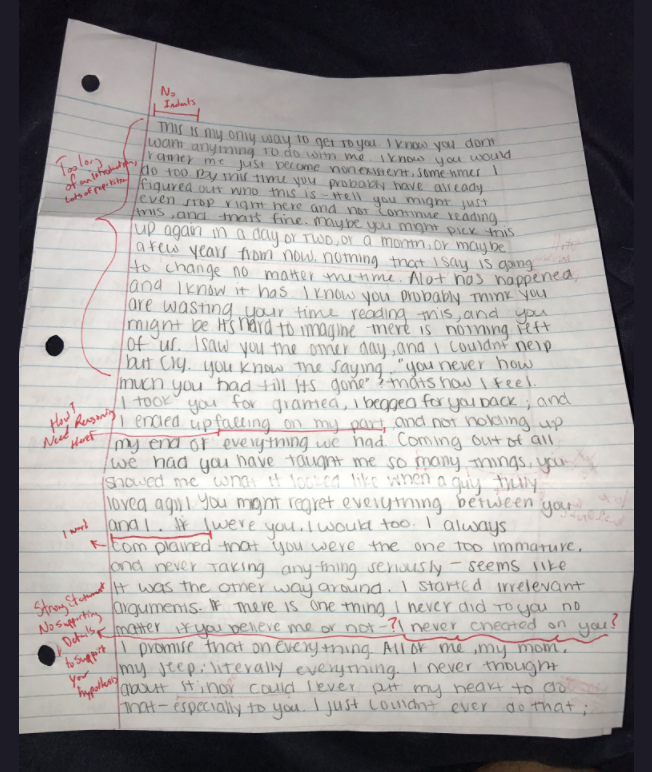 No
Indents
Too long
of an introduction,
Lots of repetition
This is my only way to get to you. I know you dont
want anything to do with me. I know you would
rather me just become nonexistent, sometimes I
do too. By this time you probably have already
figured out who this is - Hell you might just
even stop right here and not continue reading
this, and that's fine. maybe you might pick this
up again in a day or two, or a month, or maybe
a few years from now, nothing that I say is going
to change no matter the time. Alot has happened,
and I know it has. I know you probably think you
are wasting your time reading this, and you
might be. It's hard to imagine there is nothing left
of us. I saw you the other day, and I couldn't help
but cry. you know the saying, "you never how
much you had till its gone" thats how I feel.
I took you for granted, I begged for you back ; and
How?
Need Reasoning
Here!
I ended up falling on my part, and not holding up
my end of everything we had. Coming out of all
we had you have taught me so many things, you
showed me what it looked like when a guy truly
loved a girl. You might regret everything between you
1 word
and I. If I were you, I would too. I always
complained that you were the one too immature,
and never taking any-thing seriously - seems like
it was the other way around. I started irrelevant
Strong Statement
No supporting
Details
to support
your
hypothesis
arguments. If there is one thing I never did to you no
matter if you believe me or not -? I never cheated on you?
I promise that on everything. All of me, my mom,
my step: literally everything. I never thought
about it; nor could I ever, put my heart to do
that - especially to you. I just couldnt ever do that ;